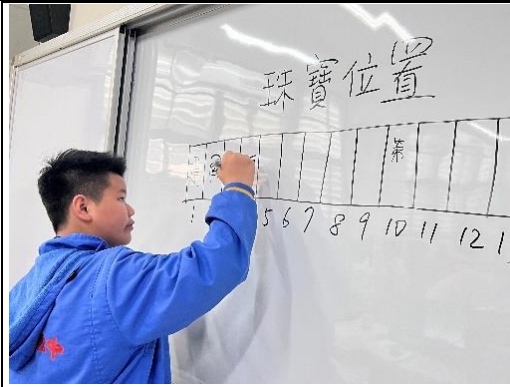 珠寶位置
第
1 5 6 7 8 9 10 11 12 1